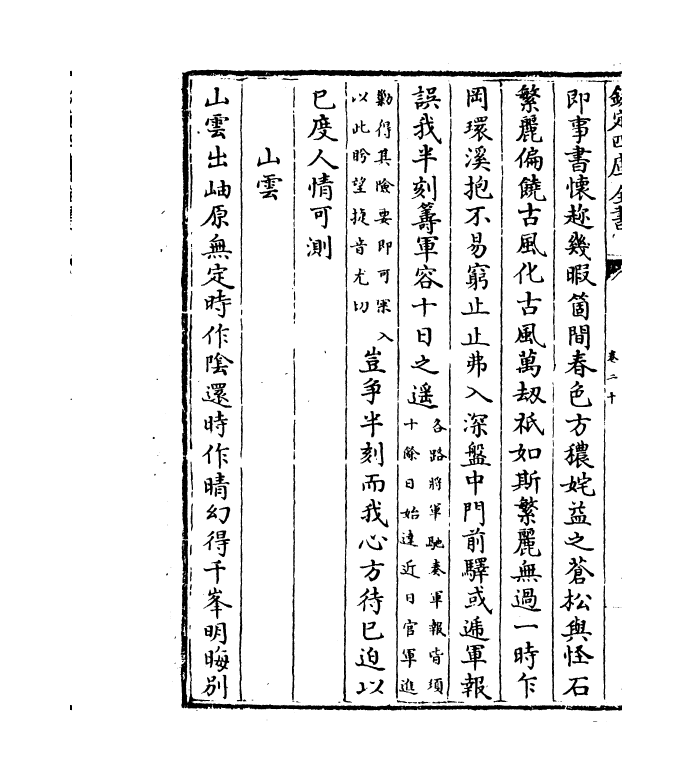 欽定四庫全書
卷二十
即事書懷趂幾暇箇間春色方穠姹益之蒼松與怪石
繁麗偏饒古風化古風萬刼祇如斯繁麗無過一時乍
岡環溪抱不易窮止止弗入深盤中門前驛或遞軍報
誤我半刻籌軍容十日之遥各路將軍馳奏軍報皆須十餘日始達近日官軍進
勦得其險要即可深入以此盻望捷音尤切豈爭半刻而我心方待已迫以
已度人情可測
山雲
山雲出岫原無定時作陰還時作晴幻得千峯明晦别